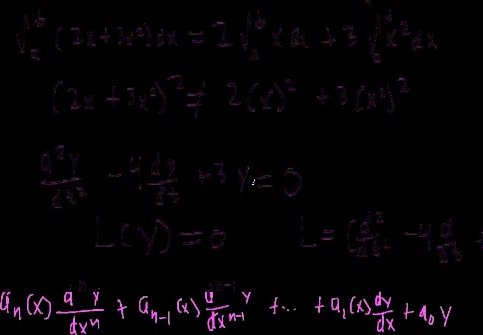 ∫_a^b (2x + 3x²) dx = 2 ∫_a^b x dx + 3 ∫_a^b x² dx
(2x + 3x²)² ≠ 2(x)² + 3(x²)²
d²y/dt² - 4 dy/dt + 3y = 0
L(y) = 0 L = (d²/dt² - 4 d/dt +
aₙ(x) dⁿy/dxⁿ + aₙ₋₁(x) dⁿ⁻¹y/dxⁿ⁻¹ + ... + a₁(x) dy/dx + a₀ y